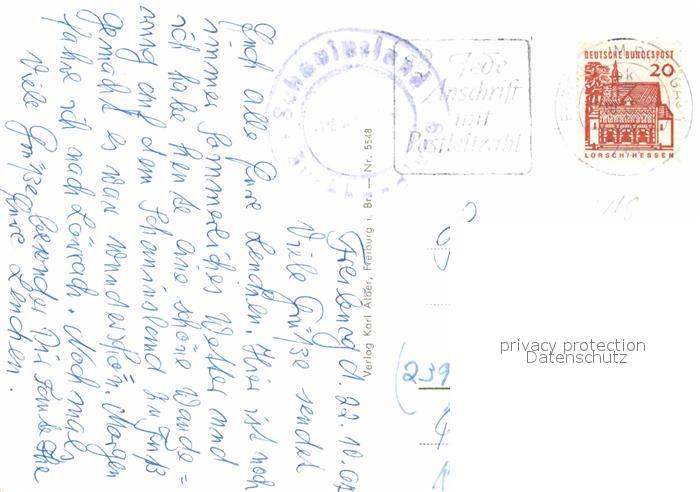 Freiburg d. 22. 10. 67
Viele Grüße sendet
Euch alle Eure Lenchen. Hier ist noch
immer sommerliches Wetter und
ich habe heute eine schöne Wande=
rung auf dem Schauinsland zu Fuß
gemacht es war wunderschön. Morgen
fahre ich nach Lörrach. Nochmals
Viele Grüße besonders
Eure Lenchen.
Verlag Karl Alber, Freiburg i. Br. — Nr. 5548
Schauinsland
Jede
Anschrift
mit
Postleitzahl
DEUTSCHE BUNDESPOST
20
LORSCH/HESSEN
(239
116
privacy protection
Datenschutz